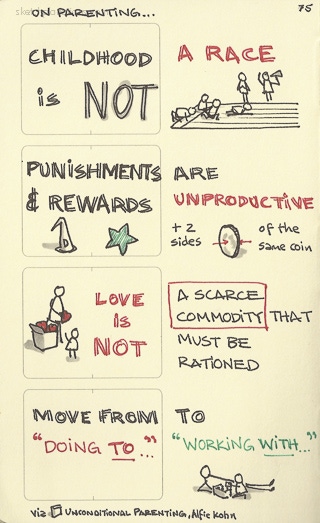 ON PARENTING...
75
CHILDHOOD
is NOT
A RACE
PUNISHMENTS
& REWARDS
ARE
UNPRODUCTIVE
+ 2
sides
of the
same coin
LOVE
is
NOT
A SCARCE
COMMODITY THAT
MUST BE
RATIONED
MOVE FROM
"DOING TO..."
TO
"WORKING WITH..."
via UNCONDITIONAL PARENTING, Alfie Kohn